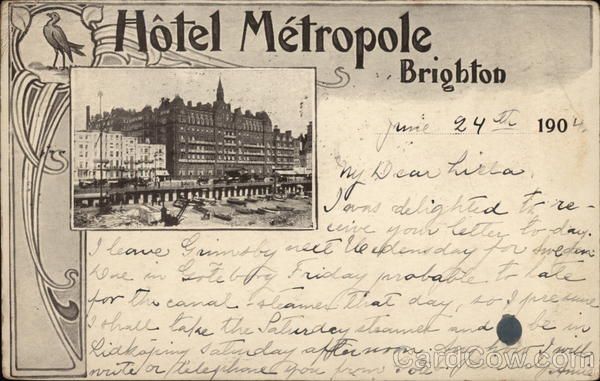 Hôtel Métropole
Brighton
June 24th 1904
My Dear
I was delighted to re-
ceive your letter to-day.
I leave Grimsby next Wednesday for Sweden
Due in Goteborg Friday probable to late
for the canal-steamer that day, so I presume
I shall take the Saturday steamer and be in
Lidköping Saturday afternoon I will
write or telephone you from
CardCow.com